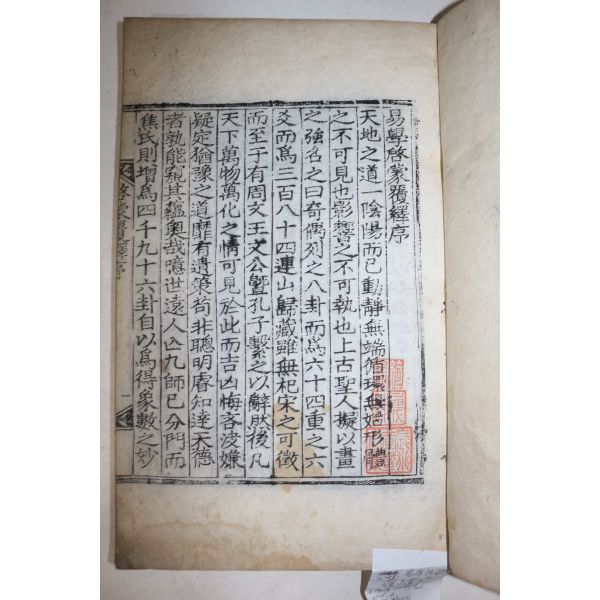 易學啓蒙覆繹序
天地之道一陰陽而已動靜無端循環無始形體
之不可見也影響之不可執也上古聖人擬以畫
之強名之曰奇偶列之八卦而爲六十四重之六
爻而爲三百八十四連山歸藏雖無杞宋之可徵
而至于有周文王文公曁孔子繫之以辭然後凡
天下萬物萬化之情可見於此而吉凶悔吝決嫌
疑定猶豫之道靡有遺策苟非聰明睿知達天德
者孰能窺其蘊奧我噫世遠人亾九師已分門而
焦氏則增爲四千九十六卦自以爲得象數之妙
啓蒙覆繹序
一